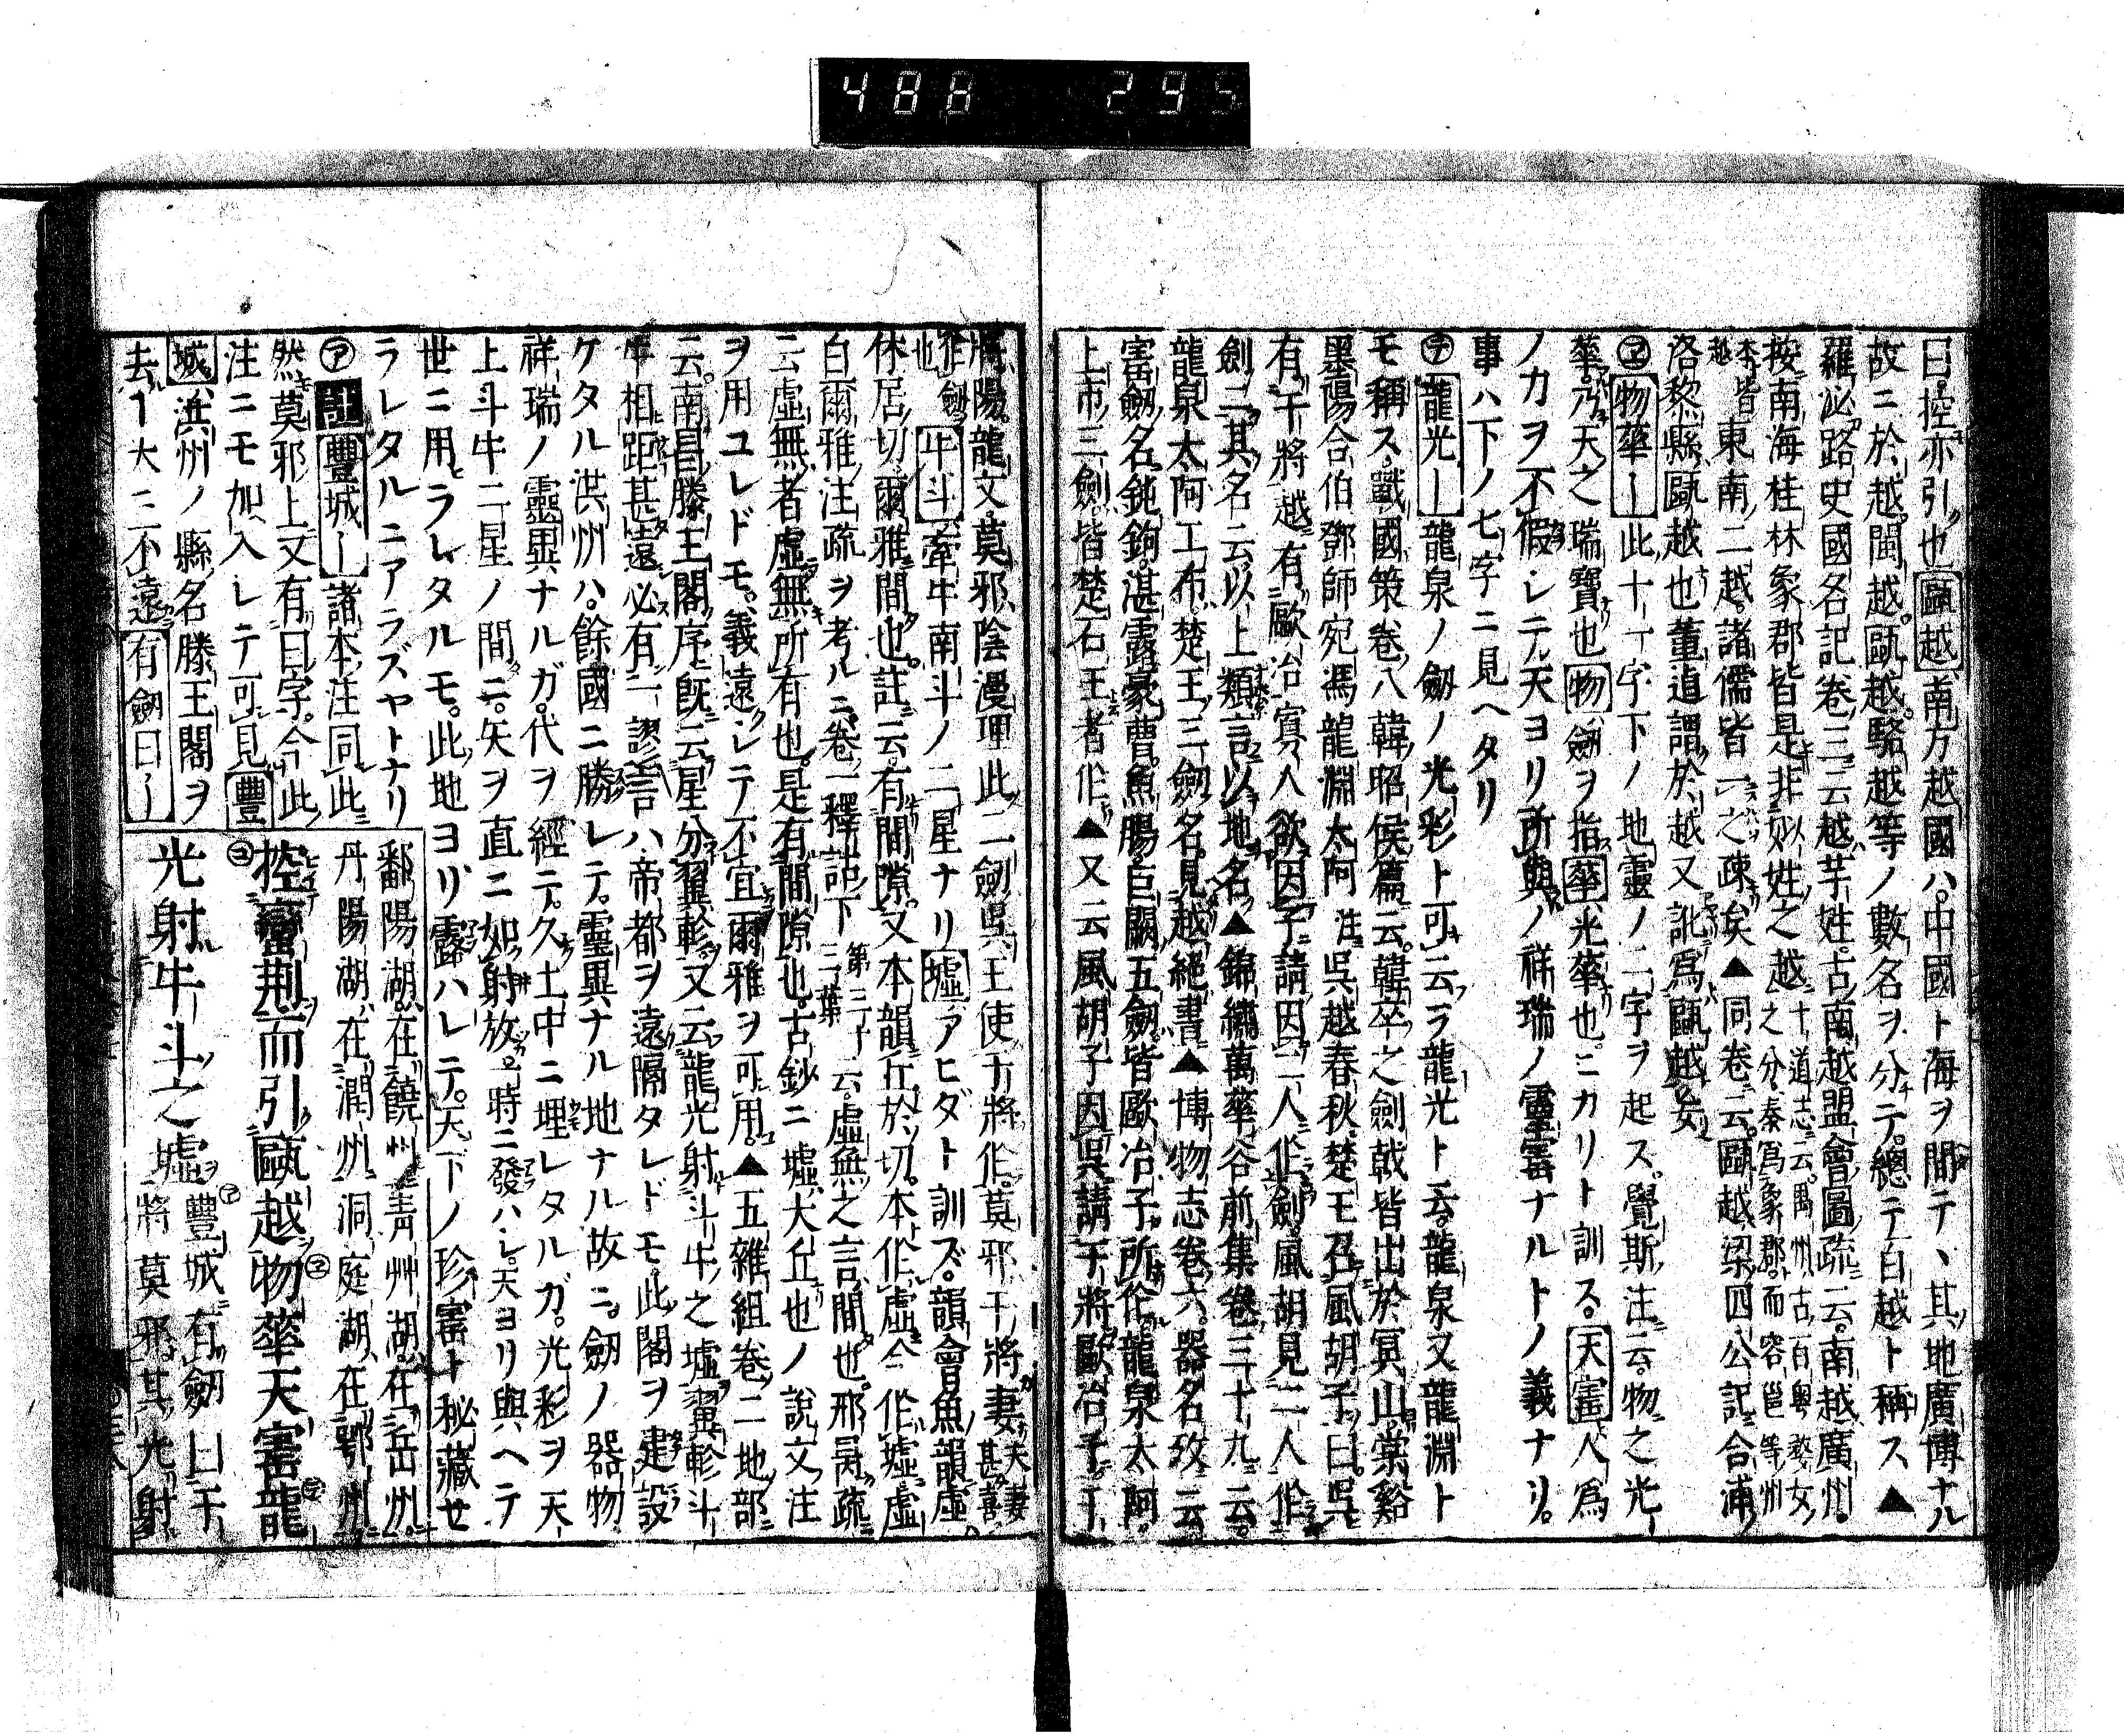 488 295
曰控亦引也甌越南方越國ハ中國ト海ヲ間テヽ其地廣博ナル
故ニ於越閩越甌越駱越等ノ數名ヲ分テ總テ百越ト稱ス▲
羅泌路史國名記卷三云越芉姓古南越盟會圖疏云南越廣州
按南海桂林象郡皆是非姒姓之越十道志云禺州古百粤婺女之分秦爲象郡而容邕等州
本越皆東南二越諸儒皆一之疎矣▲同卷云甌越梁四公記合浦
洛黎縣甌越也董逌謂於越又訛爲甌越妄
ヱ物華ー此十一字下ノ地靈ノ二字ヲ起ス覺斯注云物之光
華乃天之瑞寶也物劒ヲ指華光華也ニカリト訓ス天寳人爲
ノカヲ不假レテ天ヨリ所與ノ祥瑞ノ靈寳ナルトノ義ナリ
事ハ下ノ七字ニ見ヘタリ
テ龍光ー龍泉ノ劒ノ光彩ト可云ヲ龍光ト云龍泉又龍淵ト
モ稱ス戰國策卷八韓昭侯篇云韓卒之劍戟皆出於冥山棠谿
墨陽合伯鄧師宛馮龍淵太阿注呉越春秋楚王召風胡子曰呉
有干將越有歐冶寡人欲因子請因二人作劍風胡見二人作
劍二其名云以上類言以地名▲錦繡萬華谷前集卷三十九云
龍泉太阿工布楚王三劒名見越絕書▲博物志卷六器名攷云
寳劒名鈍鉤湛露豪曹魚膓巨闕五劒皆歐冶子所作龍泉太阿
上市三劍皆楚石王者作▲又云風胡子因呉請干將歐冶子干
將陽龍文莫邪陰漫理此二劍呉王使干將作莫邪干將妻夫妻甚喜
作劍也牛斗牽牛南斗ノ二星ナリ墟アヒダト訓ズ韻會魚韻虛
休居切爾雅間也註云有間隙又本韻丘於切本作虛今作墟虛
白爾雅注疏ヲ考ルニ卷一釋詁下第二十三葉云虛無之言間也邢昺疏
ニ云虛無者虛無所有也是有間隙也古鈔ニ墟大丘也ノ說文注
ヲ用ユレドモ義遠レテ不宜爾雅ヲ可用▲五雜組卷二地部
云南昌滕王閣序既云星分翼軫又云龍光射斗牛之墟翼軫斗
牛相距甚遠必有一謬吿ハ帝都ヲ遠隔タレドモ此閣ヲ建設
ケタル洪州ハ餘國ニ勝レテ靈異ナル地ナル故ニ劒ノ器物
祥瑞ノ靈異ナルガ代ヲ經テ久土中ニ埋レタルガ光彩ヲ天
上斗牛二星ノ間ニ矢ヲ直ニ如射放一時ニ發ハレ天ヨリ與ヘテ
世ニ用ラレタルモ此地ヨリ露ハレテ天下ノ珍寳ト秘藏セ
ラレタルニアラズヤトナリ
ア註豐城ー諸本注同此
然莫邪上又有曰字今此
注ニモ加入レテ可見豐
城洪州ノ縣名滕王閣ヲ
去ー大二不遠有劒曰ー
鄱陽湖在饒州青艸湖在岳州
丹陽湖在潤州洞庭湖在鄂州
控蠻荆而引甌越物華天寳龍
光射牛斗之墟豐城有劒曰干
將莫邪其光射